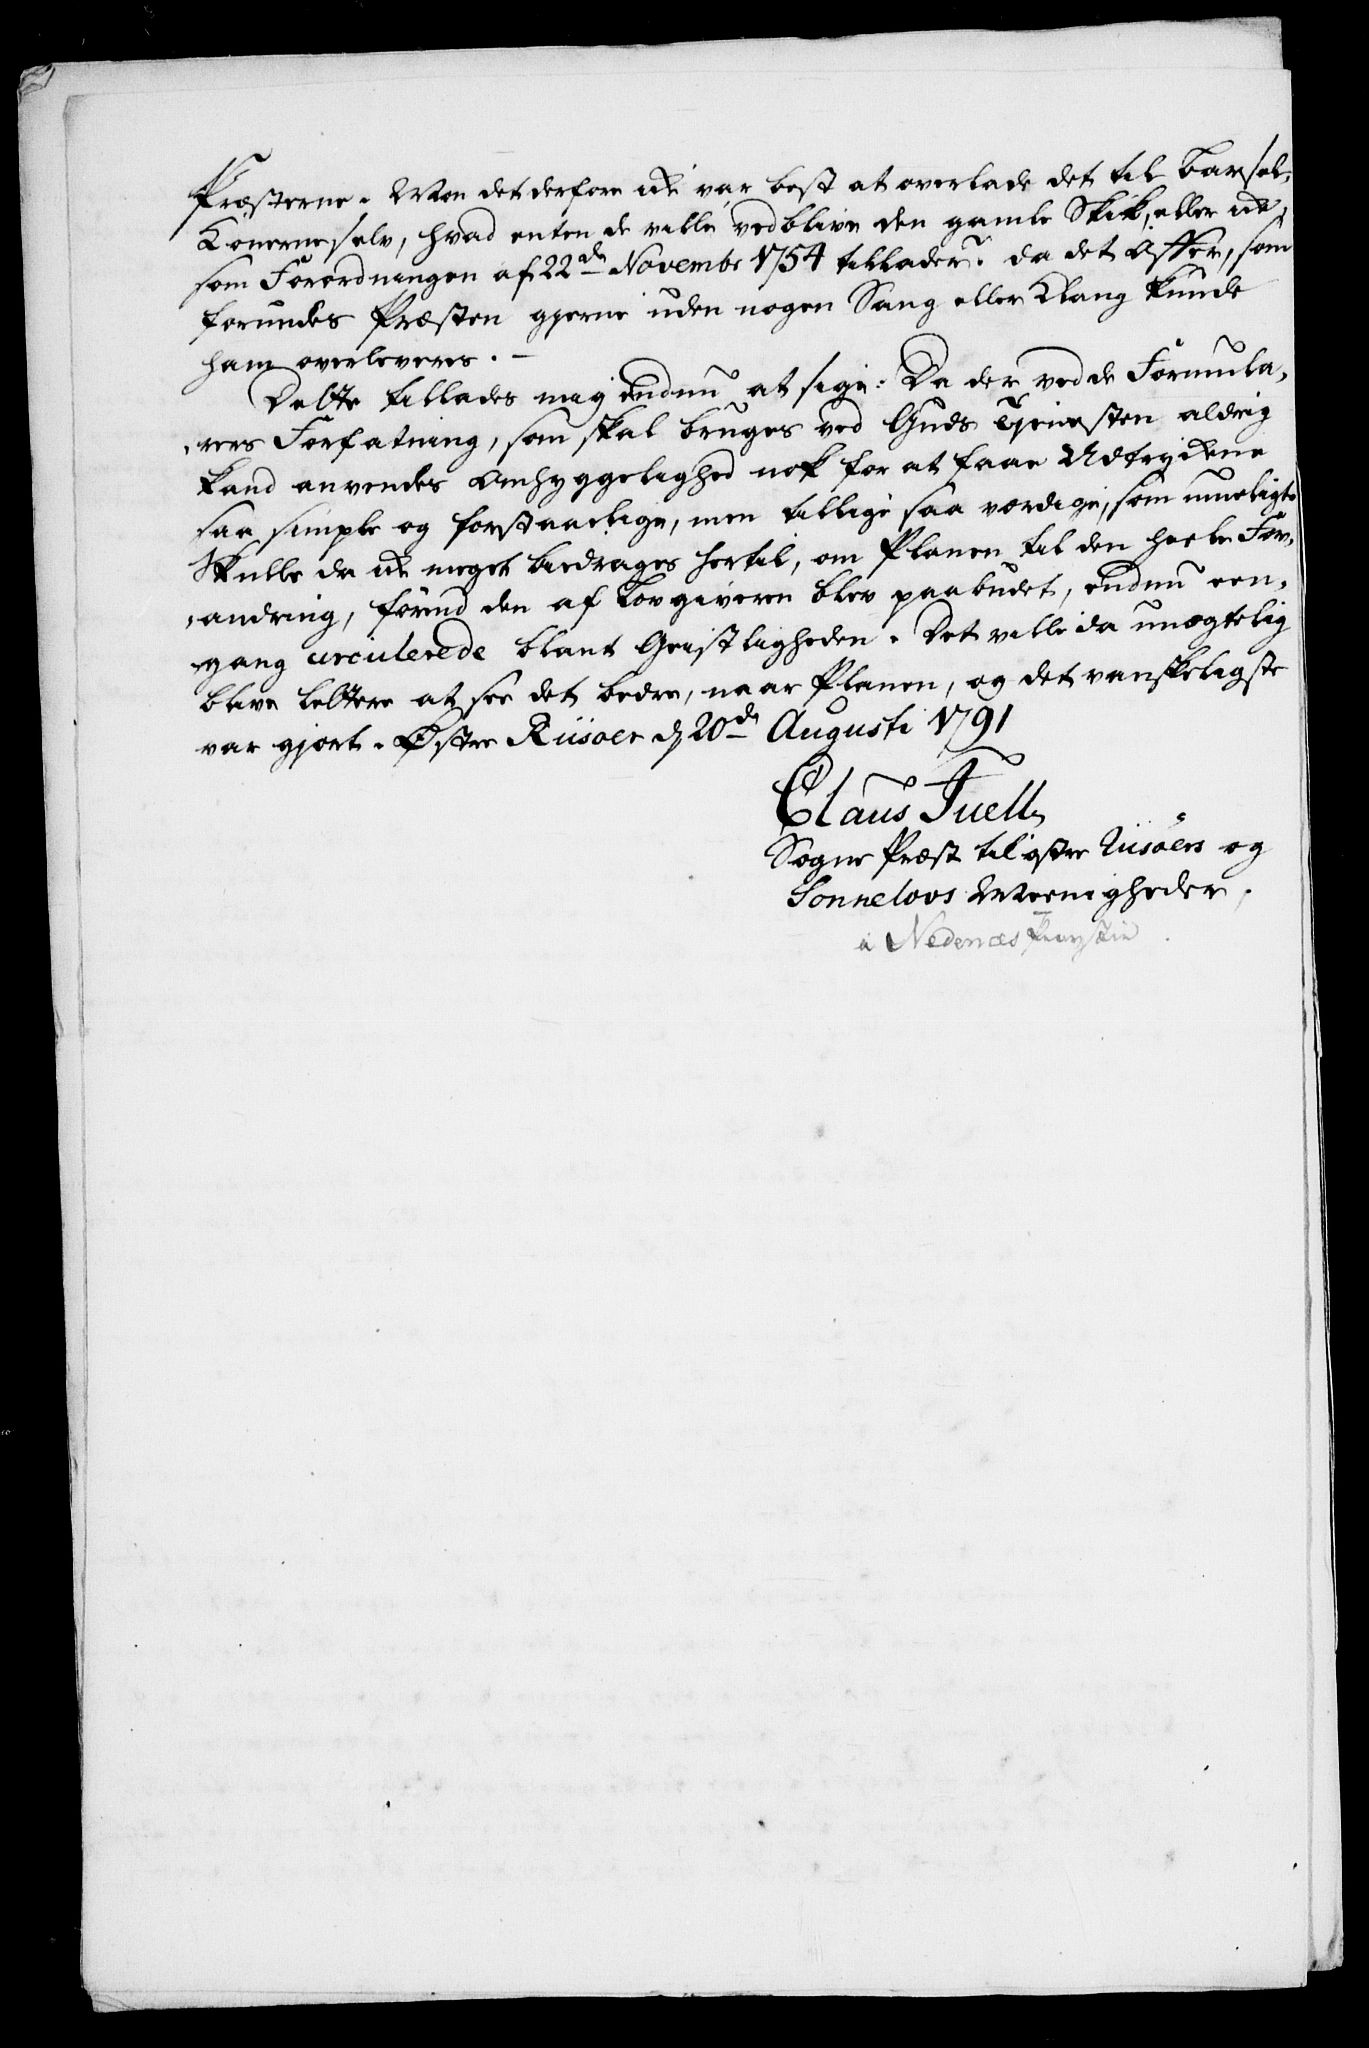 Præsterne. Mon det derfore ikke var best at overlade det til Barsel-
Konerne selv, hvad enten de ville vedblive den gamle Skik, eller ikke,
som Forordningen af 22de Novembr 1754 tillader? da det Offer, som
forundes Præsten gjerne uden nogen Sang eller Klang kunde
ham overleveres. –
Dette tillades mig endnu at sige: Da der ved de Formula-
rers Forfatning, som skal bruges ved Guds Tjenesten aldrig
kand anvendes Omhyggelighed nok for at faae Udtrykkene
saa simple og forstaaelige, men tillige saa værdige, som mueligt
Skulle da ikke meget bidrages hertil, om Planen til den heele For-
andring, førend den af Lovgiveren blev paabudet, endnu een-
gang circulerede blant Geistligheden. Det ville da unægtelig
blive lettere at see det bedre, naar Planen, og det vanskeligste
var gjort. Østre Riisøer d 20de Augusti 1791
Claus Juell
Sogne Præst til østre Riisøers og
Sønneløvs Meenigheder.
i Nedenæs Provstie.